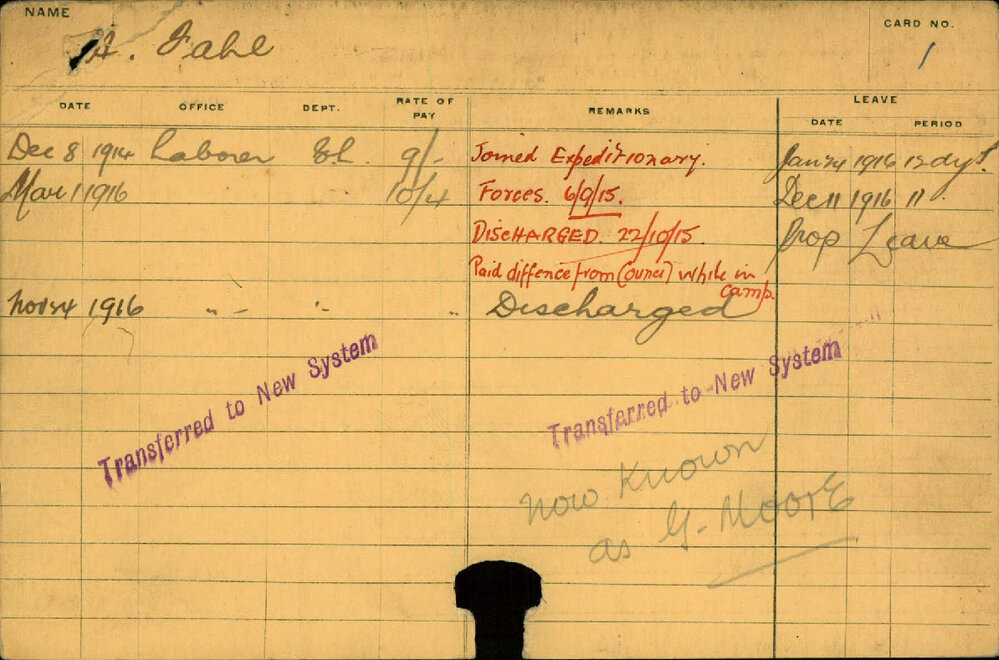 NAME
A. Fahl
CARD NO.
1
DATE OFFICE DEPT. RATE OF PAY REMARKS LEAVE
DATE PERIOD
Dec 8 1914 Laborer 9/- Joined Expeditionary. Jan 24 1916 12 dys.
Mar 1 1916 10/4 Forces. 6/9/15. Dec 11 1916 11
DiscHARGED. 22/10/15. Prop Leave
Paid diffence from Council while in camp
Nov 24 1916 " - " " Discharged
Transferred to New System
Transferred to New System
now Known
as G. Moore